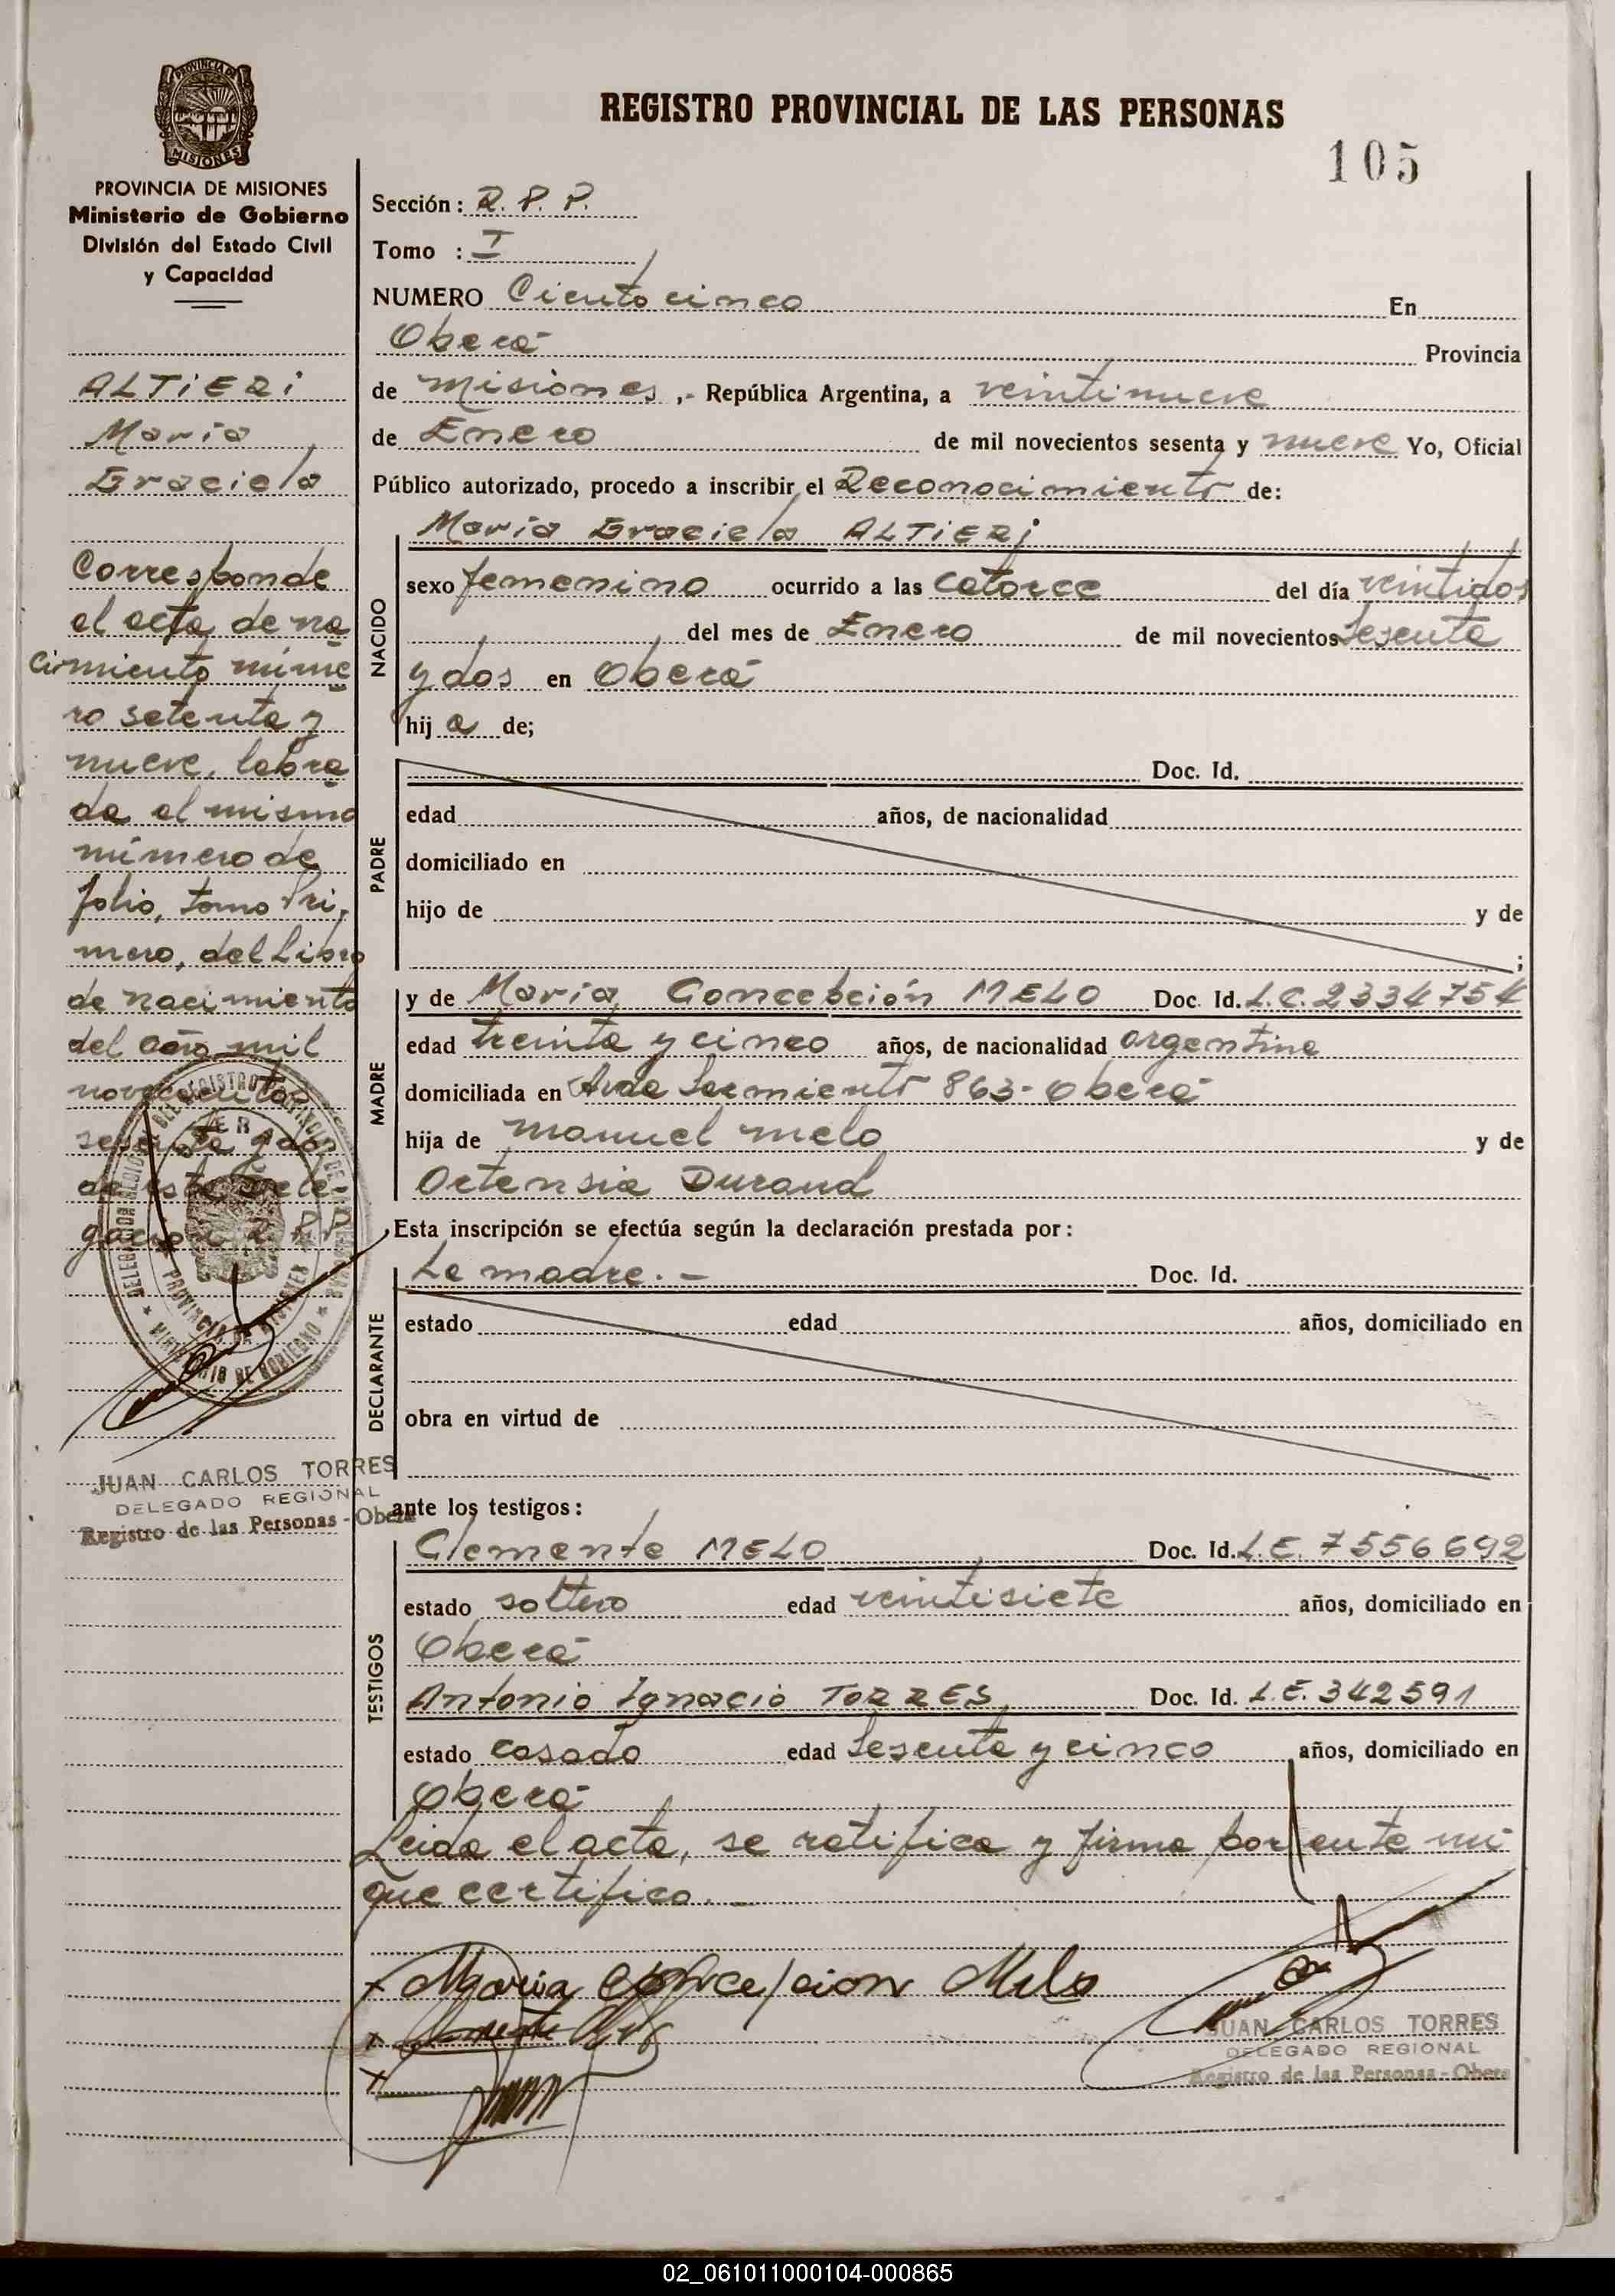 REGISTRO PROVINCIAL DE LAS PERSONAS
105
MISIONES
PROVINCIA DE MISIONES
Ministerio de Gobierno
División del Estado Civil
y Capacidad
ALTIERI
María
Graciela
Corresponde
el acta de na
cimiento núme
ro setenta y
nueve, labra
da al mismo
número de
folio, tomo Pri,
mero, del Libro
de nacimiento
del año mil
novecientos
sesenta y dos
de esta Dele-
gación R.P.P.
JUAN CARLOS TORRES
DELEGADO REGIONAL
Registro de las Personas - Oberá
Sección: R. P. P.
Tomo : I
NUMERO Ciento cinco En
Oberá Provincia
de Misiones ,- República Argentina, a veintinueve
de Enero de mil novecientos sesenta y nueve Yo, Oficial
Público autorizado, procedo a inscribir el Reconocimiento de:
María Graciela ALTIERI
NACIDO
sexo femenino ocurrido a las catorce del día veintidos
del mes de Enero de mil novecientos sesenta
y dos en Oberá
hij a de;
PADRE
Doc. Id.
edad años, de nacionalidad
domiciliado en
hijo de y de
;
MADRE
y de María Concepción MELO Doc. Id. L.C. 2334754
edad treinta y cinco años, de nacionalidad argentina
domiciliada en Avda Sarmiento 863-Oberá
hija de Manuel Melo y de
Ortensia Durand
Esta inscripción se efectúa según la declaración prestada por:
DECLARANTE
La madre. - Doc. Id.
estado edad años, domiciliado en
obra en virtud de
ante los testigos:
TESTIGOS
Clemente MELO Doc. Id. L.E. 7556692
estado soltero edad veintisiete años, domiciliado en
Oberá
Antonio Ignacio TORRES Doc. Id. L.E. 342591
estado casado edad sesenta y cinco años, domiciliado en
Oberá
Leida el acta, se ratifica y firma por ante mi
que certifico. -
Maria Concepcion Melo
JUAN CARLOS TORRES
DELEGADO REGIONAL
Registro de las Personas - Oberá
02_061011000104-000865